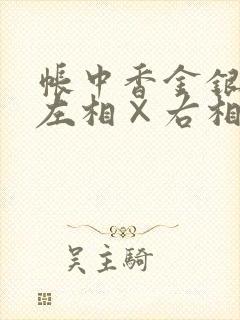 帳中香金銀
左相×右相
吴主騎